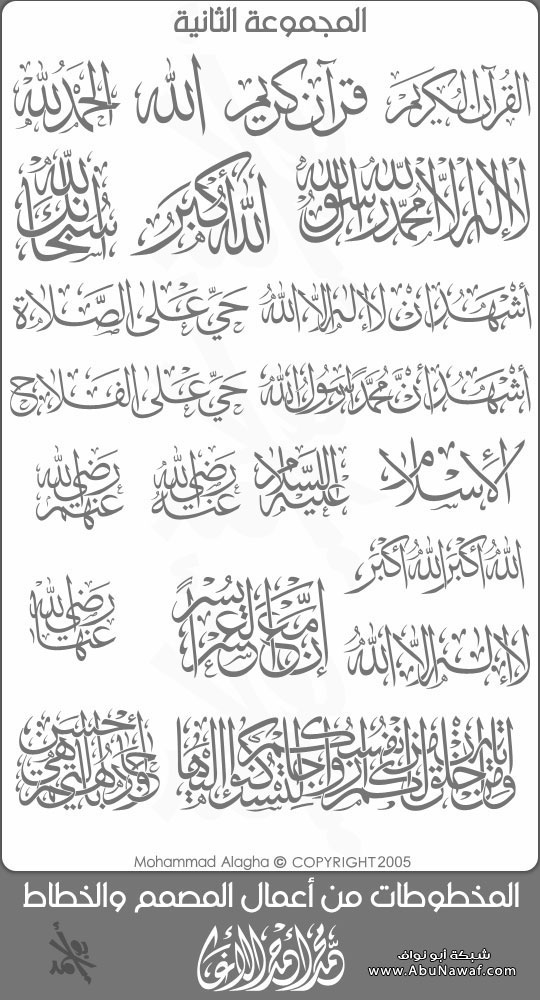 المجموعة الثانية
القرآن الكريم
قرآن كريم
الله
الحمد لله
لا إله إلا الله محمد رسول الله
الله أكبر
سبحانك الله
أشهد أن لا إله إلا الله
حي على الصلاة
أشهد أن محمدا رسول الله
حي على الفلاح
الإسلام
عليه السلام
رضي الله عنه
رضي الله عنهم
الله أكبر الله أكبر
إن مع العسر يسرا
رضي الله عنها
لا إله إلا الله
ومن آياته أن خلق لكم من أنفسكم أزواجا لتسكنوا إليها
وجادلهم بالتي هي أحسن
Mohammad Alagha © COPYRIGHT 2005
المخطوطات من أعمال المصمم والخطاط
محمد أحمد الأغا
شبكة أبو نواف
www.AbuNawaf.com